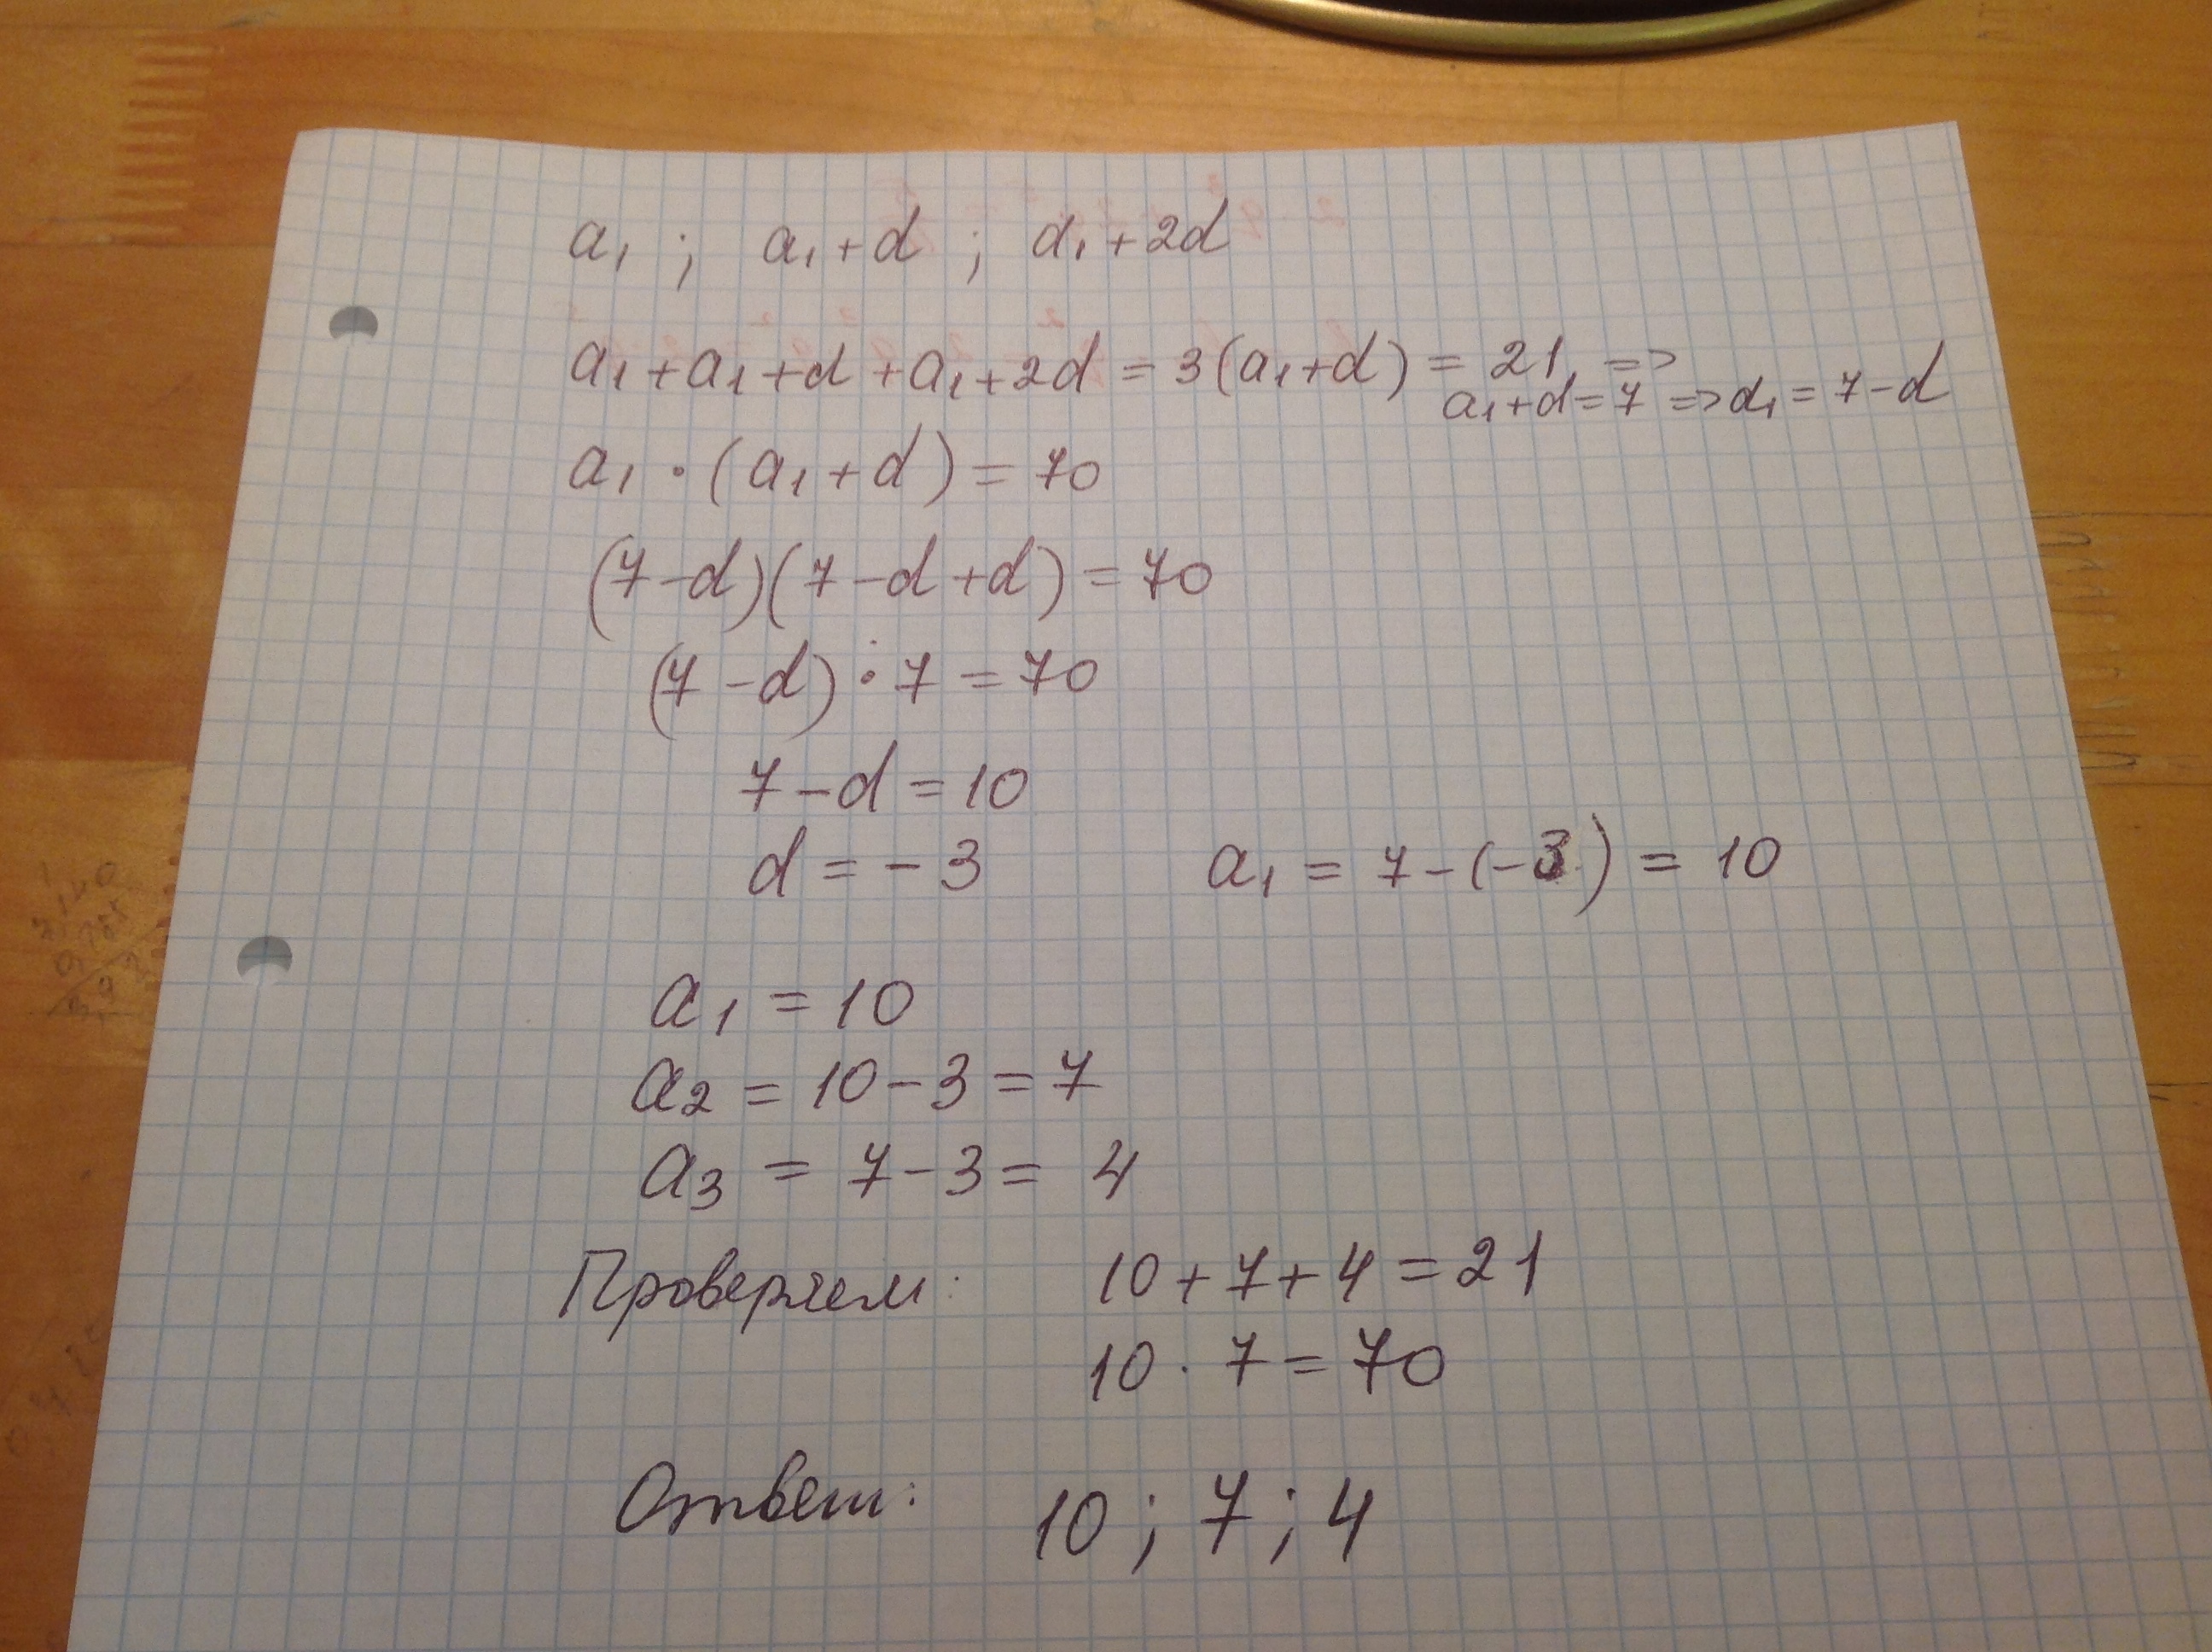 a₁ ; a₁+d ; a₁+2d
a₁+a₁+d+a₁+2d = 3(a₁+d) = 21 =>
a₁+d=7 => a₁ = 7-d
a₁ · (a₁+d) = 70
(7-d)(7-d+d) = 70
(7-d) · 7 = 70
7-d = 10
d = -3 a₁ = 7-(-3) = 10
a₁ = 10
a₂ = 10-3 = 7
a₃ = 7-3 = 4
Проверяем: 10+7+4 = 21
10 · 7 = 70
Ответ: 10 ; 7 ; 4